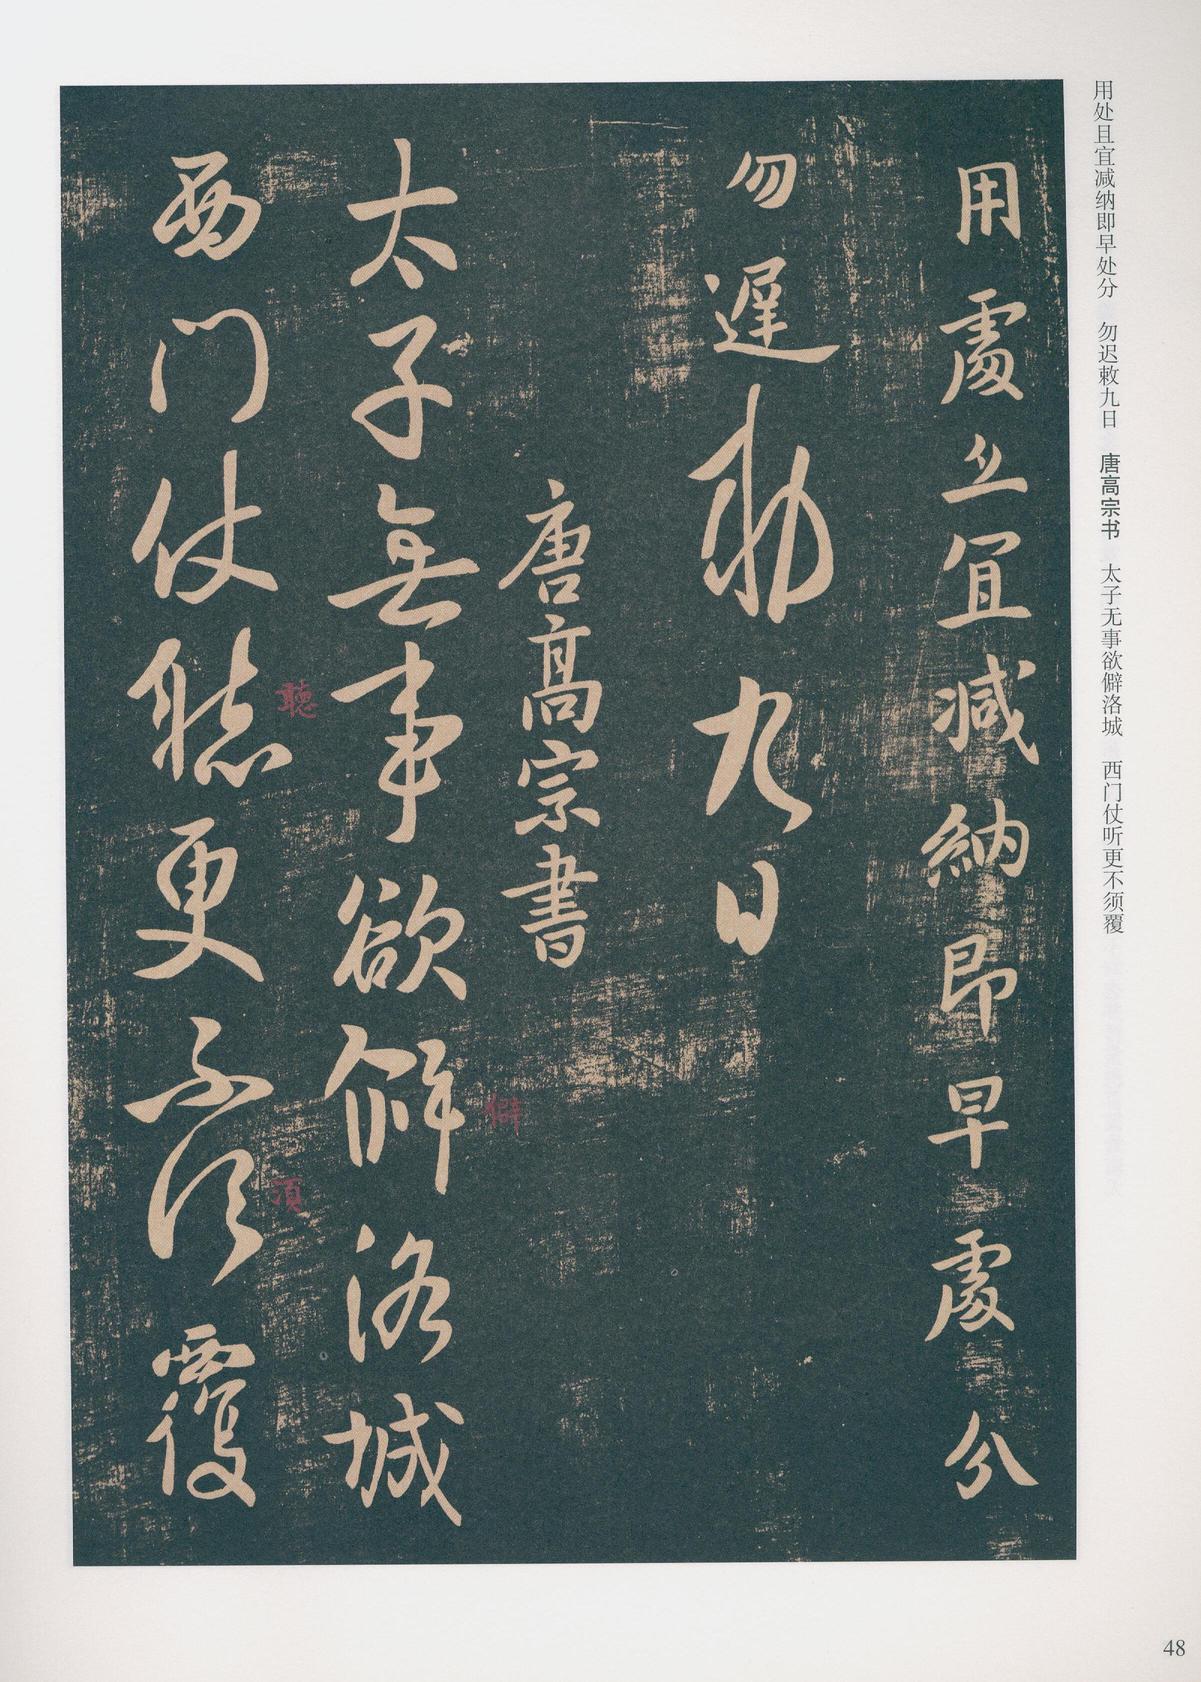 用处且宜减纳即早处分　勿迟敕九日　唐高宗书　太子无事欲僻洛城　西门仗听更不须覆
用處且宜減納即早處分
勿遲勅九日
唐高宗書
太子無事欲僻洛城
僻
西門仗聽更不須覆
聽
須
48